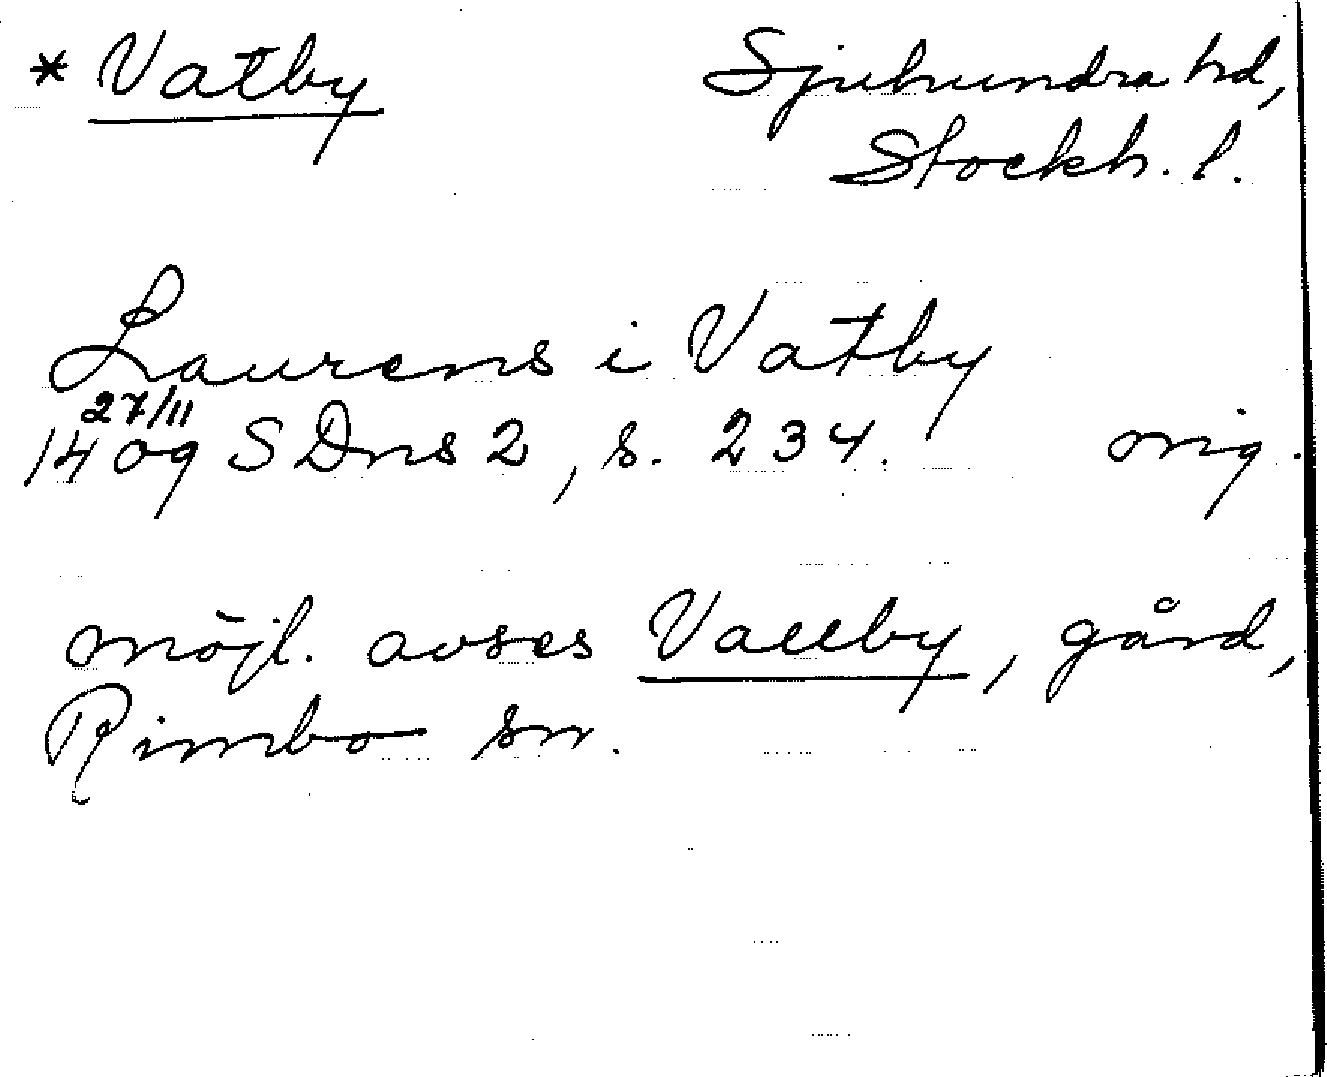 * Vatby Sjuhundra hd,
Stockh. l.
Laurens i Vatby
27/11
1409 SDns 2, s. 234. orig.
möjl. avses Vallby, gård,
Rimbo sn.